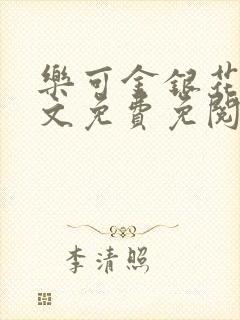 樂可金銀花
文免費免閱
李清照